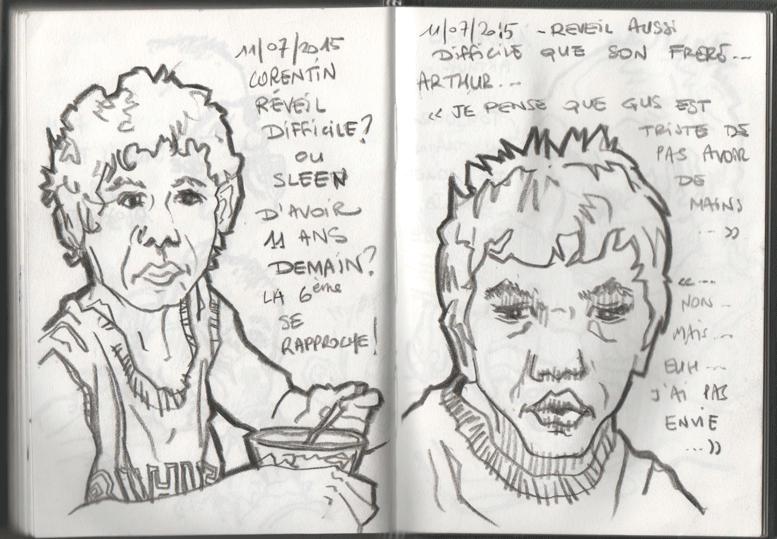 11/07/2015
CORENTIN
RÉVEIL
DIFFICILE?
OU
SLEEN
D'AVOIR
11 ANS
DEMAIN?
LA 6ème
SE
RAPPROCHE!
11/07/2015 - REVEIL AUSSI
DIFFICILE QUE SON FRERE...
ARTHUR...
« JE PENSE QUE GUS EST
TRISTE DE
PAS AVOIR
DE
MAINS
...»
«...
NON...
MAIS...
EUH...
J'AI PAS
ENVIE
...»